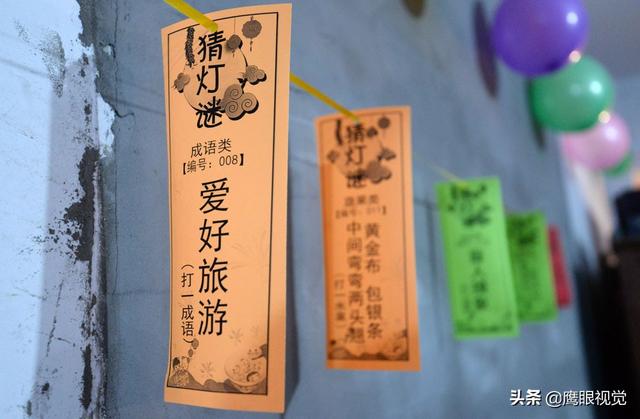 猜灯谜
成语类
【编号：008】
爱好旅游
（打一成语）
猜灯谜
蔬果类
【编号：011】
黄金布 包银条
中间弯弯两头翘
（打一水果）
头条 @鹰眼视觉